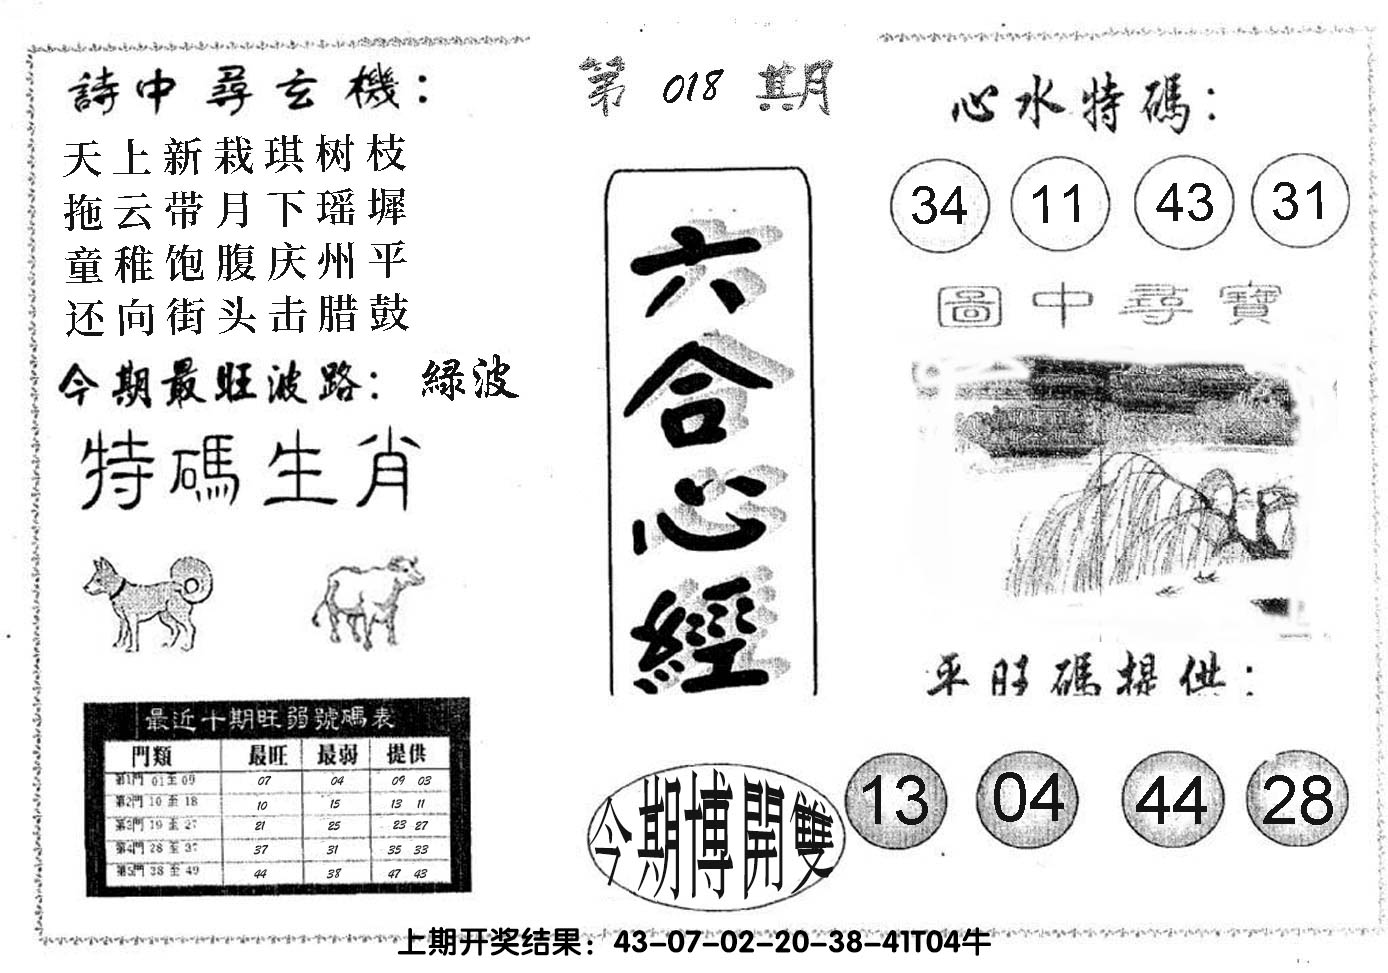 詩中尋玄機：
天上新栽琪树枝
拖云带月下瑶墀
童稚饱腹庆州平
还向街头击腊鼓
今期最旺波路：緑波
特碼生肖
最近十期旺弱號碼表
門類 最旺 最弱 提供
第1門 01至09 07 04 09 03
第2門 10至18 10 15 13 11
第3門 19至27 21 25 23 27
第4門 28至37 37 31 35 33
第5門 38至49 44 38 47 43
第018期
六合心經
今期博開雙
心水特碼：
34 11 43 31
圖中尋寶
平旺碼提供：
13 04 44 28
上期开奖结果：43-07-02-20-38-41T04牛